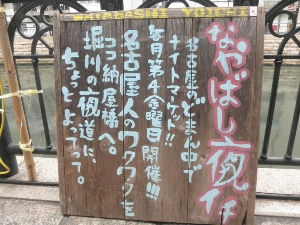 なやばし夜イチ
名古屋のどまん中で
ナイトマーケット!!
毎月第4金曜日開催!!!
名古屋人のワクワクを
ココ納屋橋へ。
堀川の夜道に、
ちょっとよってって。